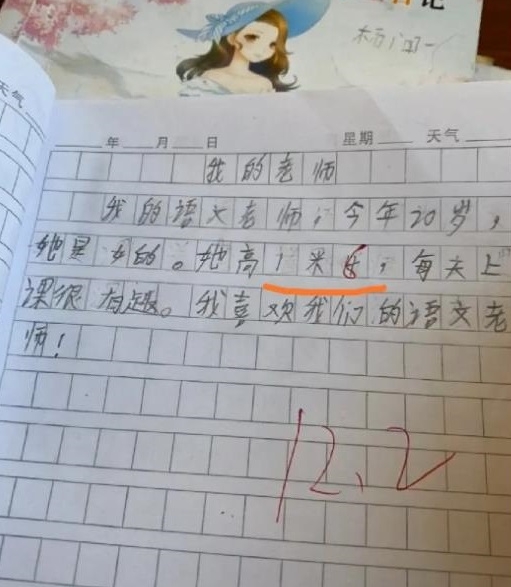 记
天气
年 月 日 星期 天气
我的老师
我的语文老师,今年20岁,
她是女的。她高1米6,每天上
课很有趣。我喜欢我们的语文老
师!
12、2